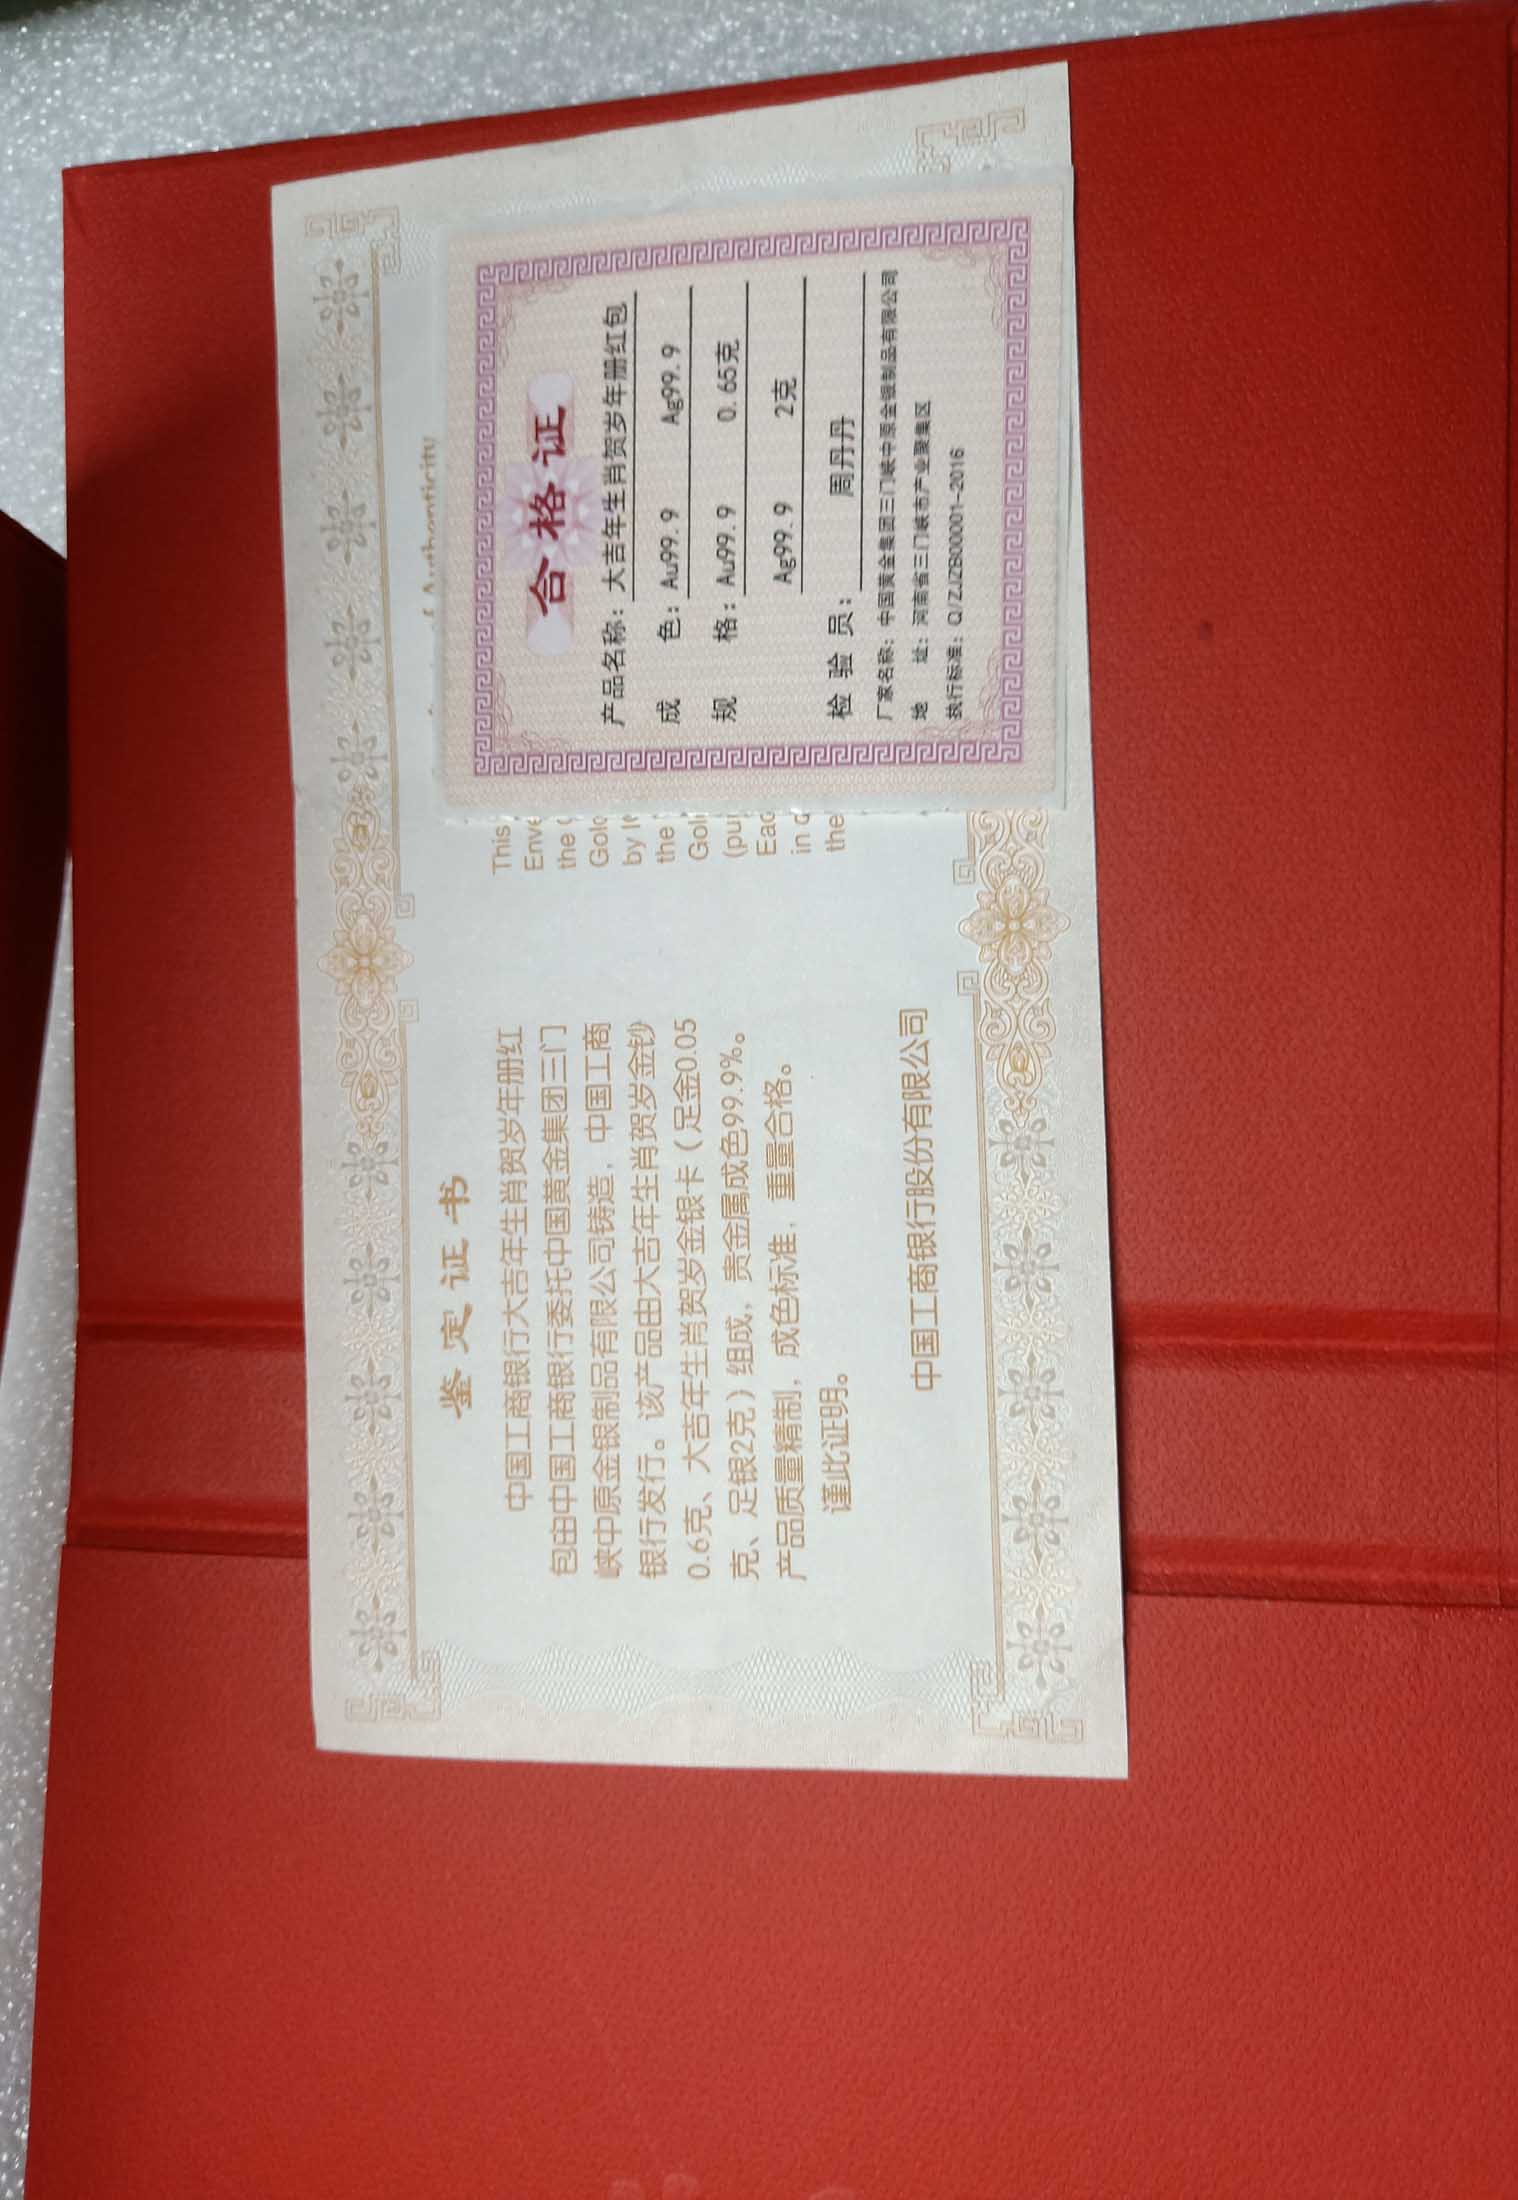 鉴定证书
中国工商银行大吉年生肖贺岁年册红
包由中国工商银行委托中国黄金集团三门
峡中原金银制品有限公司铸造，中国工商
银行发行。该产品由大吉年生肖贺岁金钞
0.6克、大吉年生肖贺岁金银卡（足金0.05
克、足银2克）组成，贵金属成色99.9%。
产品质量精制，成色标准，重量合格。
谨此证明。
中国工商银行股份有限公司
This
the
by
the
(pu
in
the
合格证
产品名称：大吉年生肖贺岁年册红包
成 色：Au99.9 Ag99.9
规 格：Au99.9 0.65克
Ag99.9 2克
检 验 员：周丹丹
厂家名称：中国黄金集团三门峡中原金银制品有限公司
地 址：河南省三门峡市产业聚集区
执行标准：Q/ZJZB00001-2016